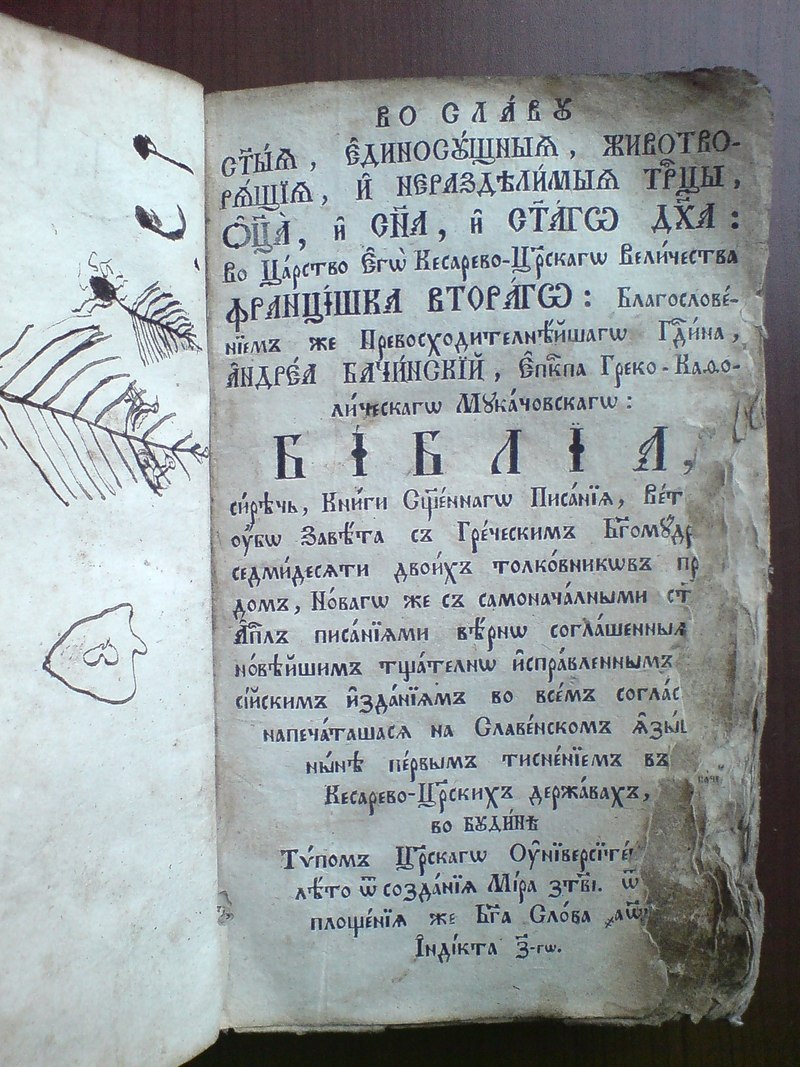 ВО СЛА́ВꙊ
СТ҃Ы́Ѧ, Е҆ДИНОСꙊ́ЩНЫѦ, ЖИВОТВО-
РѦ́ЩІѦ, И҆ НЕРАЗДѢЛИ́МЫѦ ТРⷪ҇ЦЫ,
Ѻ҆Ц҃А̀, и҆ СН҃А, и҆ СТ҃А́ГѠ ДХ҃А:
Во Ца́рство Е҆гѡ̀ Кесарево-Цр҃скагѡ Вели́чества
ФРАНЦІ́ШКА ВТОРА́ГѠ: Благослове́-
нїемъ же Превосходителнѣ́йшагѡ Гдⷭ҇и́на,
А҆НДРЕ́А БАЧИ́НСКЇЙ, Е҆пⷭ҇кпа Греко-Каѳо-
ли́ческагѡ Мꙋка́човскагѡ:
БІБЛІА,
си́рѣчь, Кни́ги Сщ҃е́ннагѡ Писа́нїѧ, Ве́т
оу҆́бѡ Завѣ́та съ Гре́ческимъ Бг҃омꙋ́др
седми́десѧти двои́хъ толко́вникѡвъ пр
домъ, Но́вагѡ же съ самонача́лными ст҃
А҆пⷭ҇лъ писа́нїѧми вѣ́рнѡ согла́шенныѧ
но́вѣйшимъ тщателнѡ и҆спра́вленнымъ
сі́йскимъ и҆зда́нїѧмъ во все́мъ согла́с
напеча́ташасѧ на Славе́нскомъ ѧ҆зы́ц
ны́нѣ пе́рвымъ тисне́нїемъ въ
Кесарево-Цр҃скихъ держа́вахъ,
во БꙊДИ́НѢ
Тѵ́помъ Цр҃скагѡ Оу҆нїверсїте́
лѣ́то ѿ созда́нїѧ Мі́ра зтв҃і. ѿ
площе́нїѧ же Бг҃а Сло́ва ҂аѡ҃
І҆нді́кта з҃-гѡ.